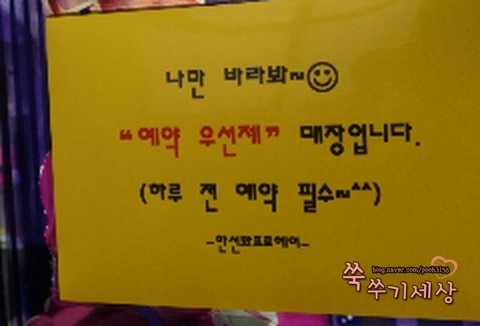 나만 바라봐~☺
"예약 우선제" 매장입니다.
(하루 전 예약 필수~^^)
-한선화프로헤어-
blog.naver.com/pooh3156
쑥쑤기세상